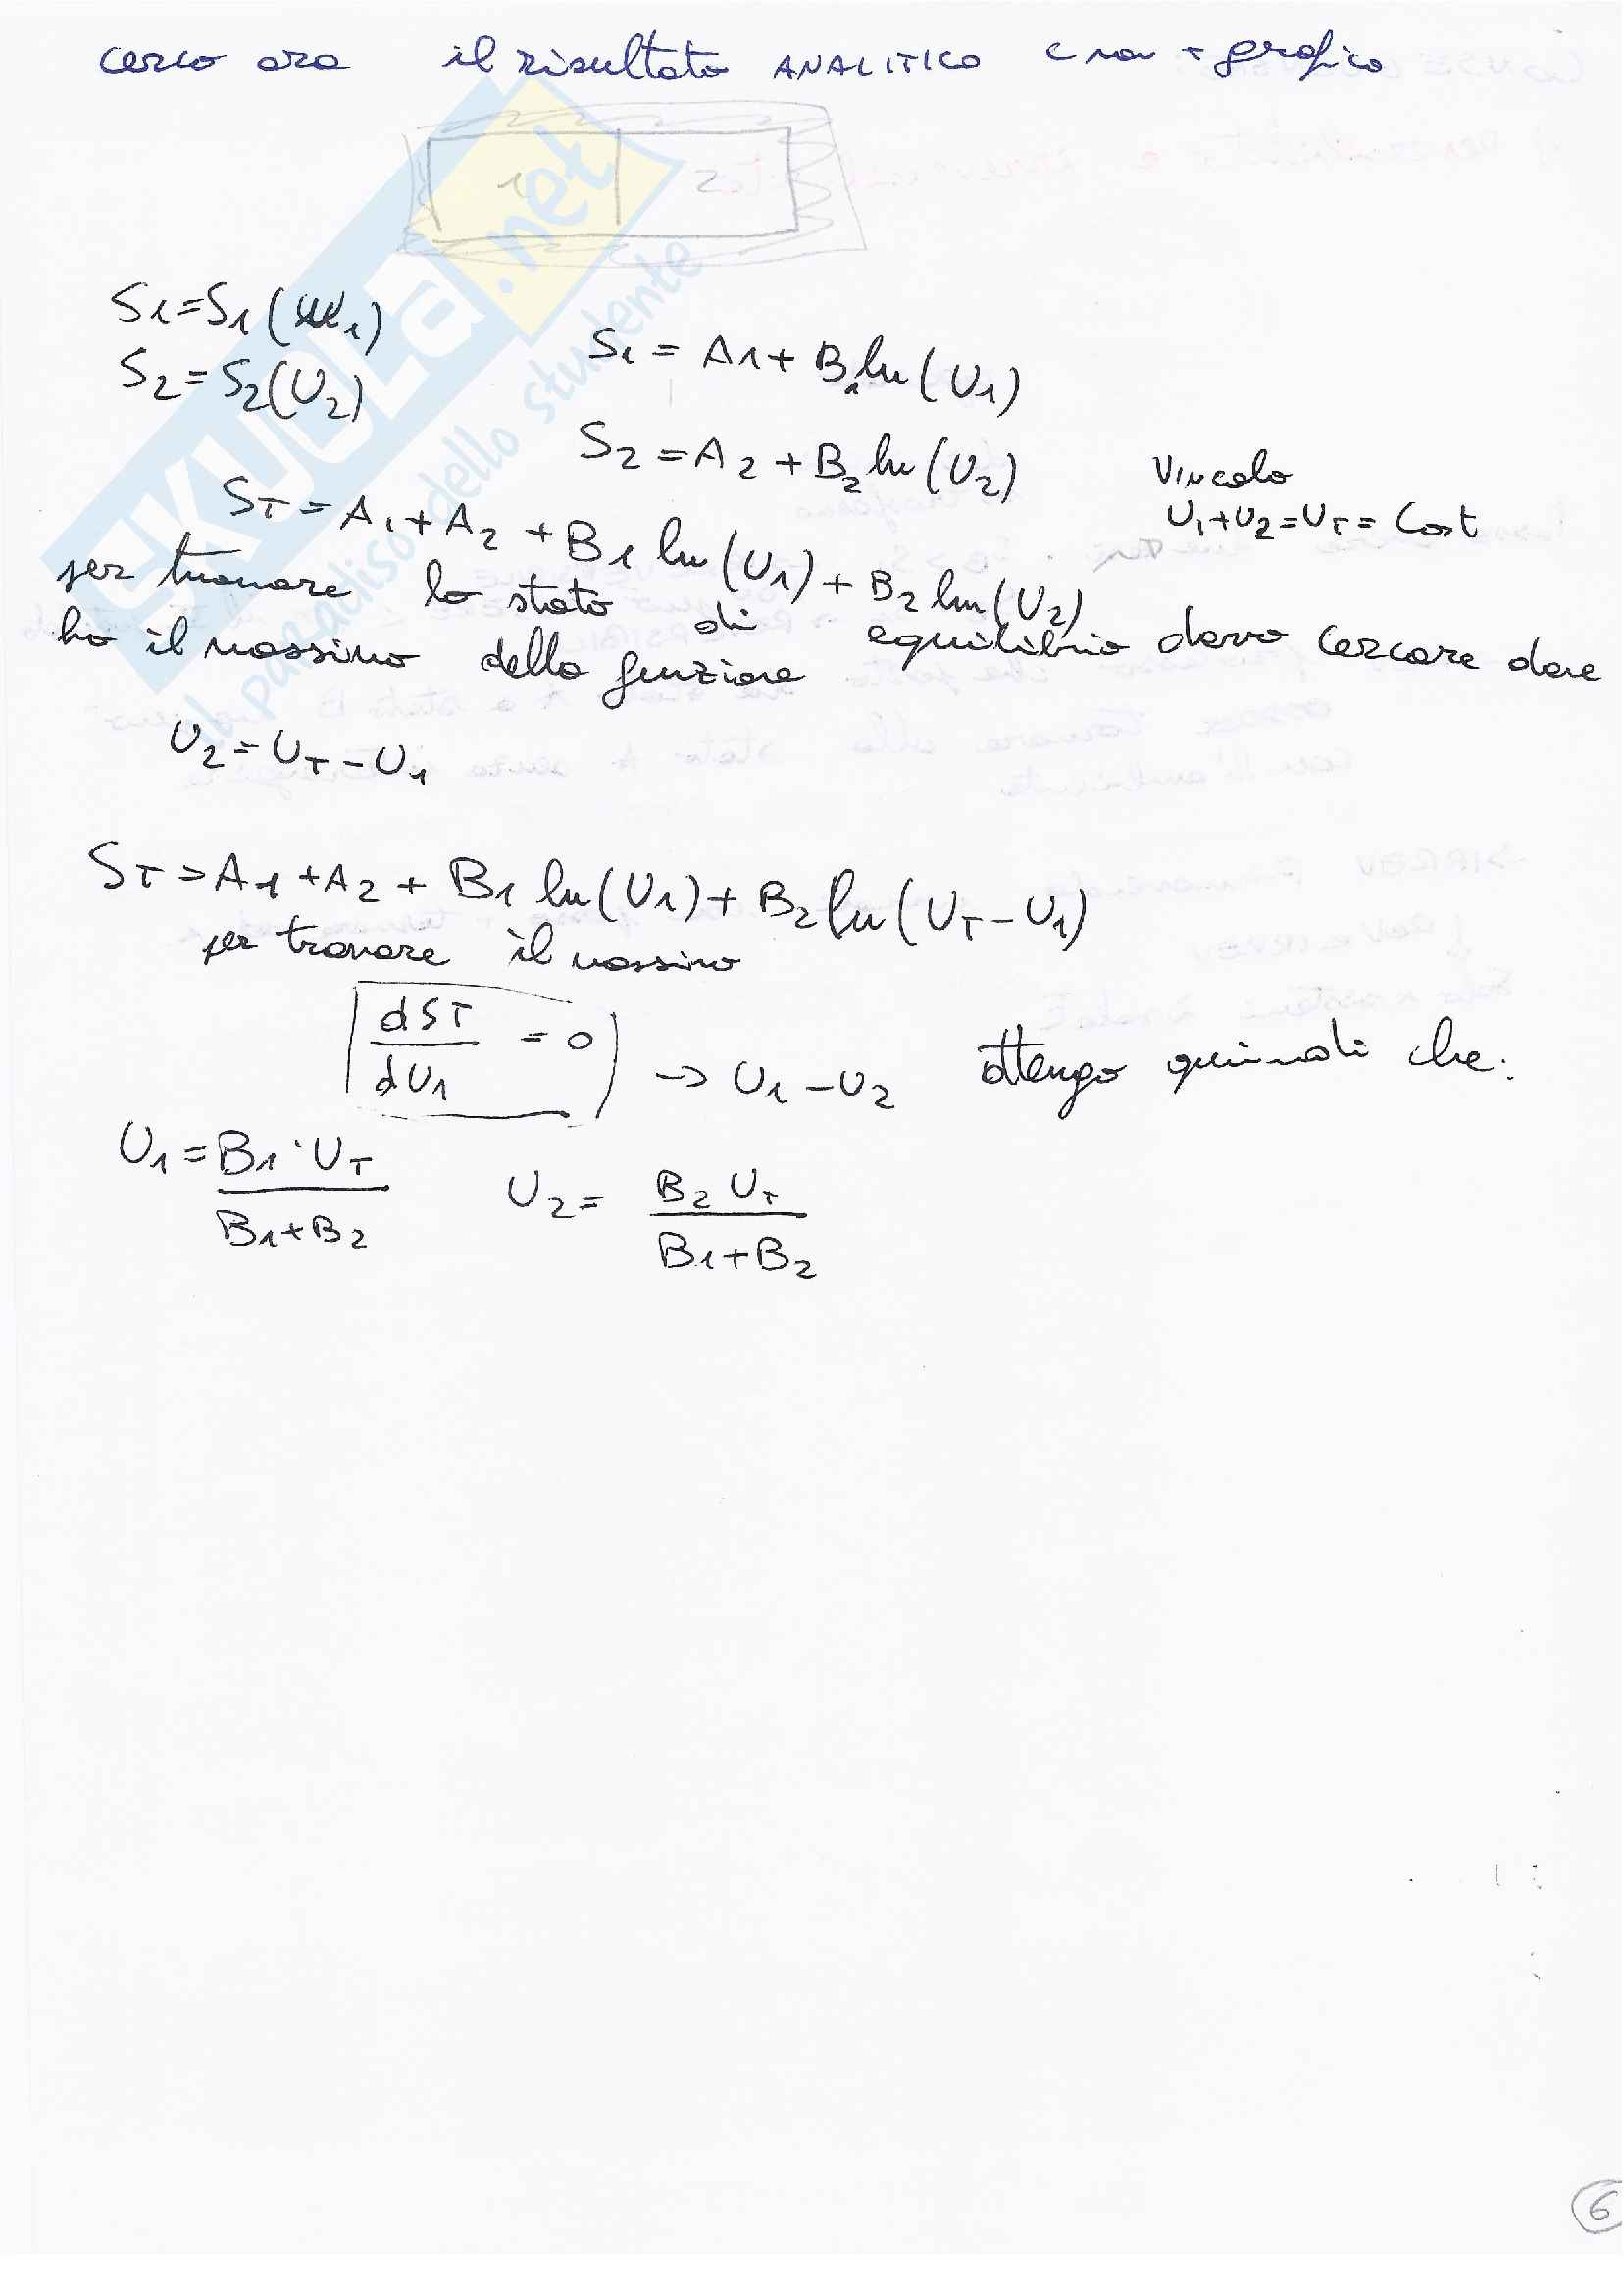 cerco ora il risultato ANALITICO e non + grafico
1 2
S1=S1(U1)
S2=S2(U2)
S1 = A1+B1 ln(U1)
S2=A2+B2 ln(U2)
Vincolo
U1+U2=UT= Cost
ST=A1+A2+B1 ln(U1)+B2 ln(U2)
per trovare lo stato di equilibrio devo cercare dove
ho il massimo della funzione
U2=UT-U1
ST=A1+A2+B1 ln(U1)+B2 ln(UT-U1)
per trovare il massimo
dST/dU1 =0 -> U1-U2 ottengo quindi che:
U1=B1·UT/B1+B2 U2= B2 UT/B1+B2
6
SKUOLA.net
il paradiso dello studente